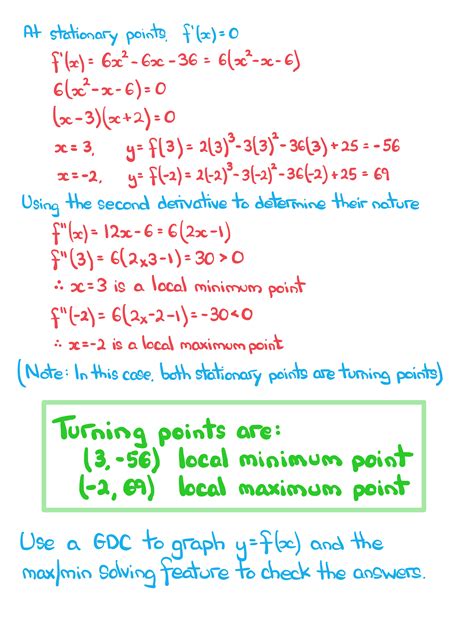 At stationary points, f'(x)=0
f'(x) = 6x² - 6x - 36 = 6(x² - x - 6)
6(x² - x - 6) = 0
(x-3)(x+2) = 0
x = 3, y = f(3) = 2(3)³ - 3(3)² - 36(3) + 25 = -56
x = -2, y = f(-2) = 2(-2)³ - 3(-2)² - 36(-2) + 25 = 69
Using the second derivative to determine their nature
f"(x) = 12x - 6 = 6(2x-1)
f"(3) = 6(2×3-1) = 30 > 0
∴ x=3 is a local minimum point
f"(-2) = 6(2×-2-1) = -30 < 0
∴ x=-2 is a local maximum point
(Note: In this case, both stationary points are turning points)
Turning points are:
(3, -56) local minimum point
(-2, 69) local maximum point
Use a GDC to graph y=f(x) and the
max/min solving feature to check the answers.